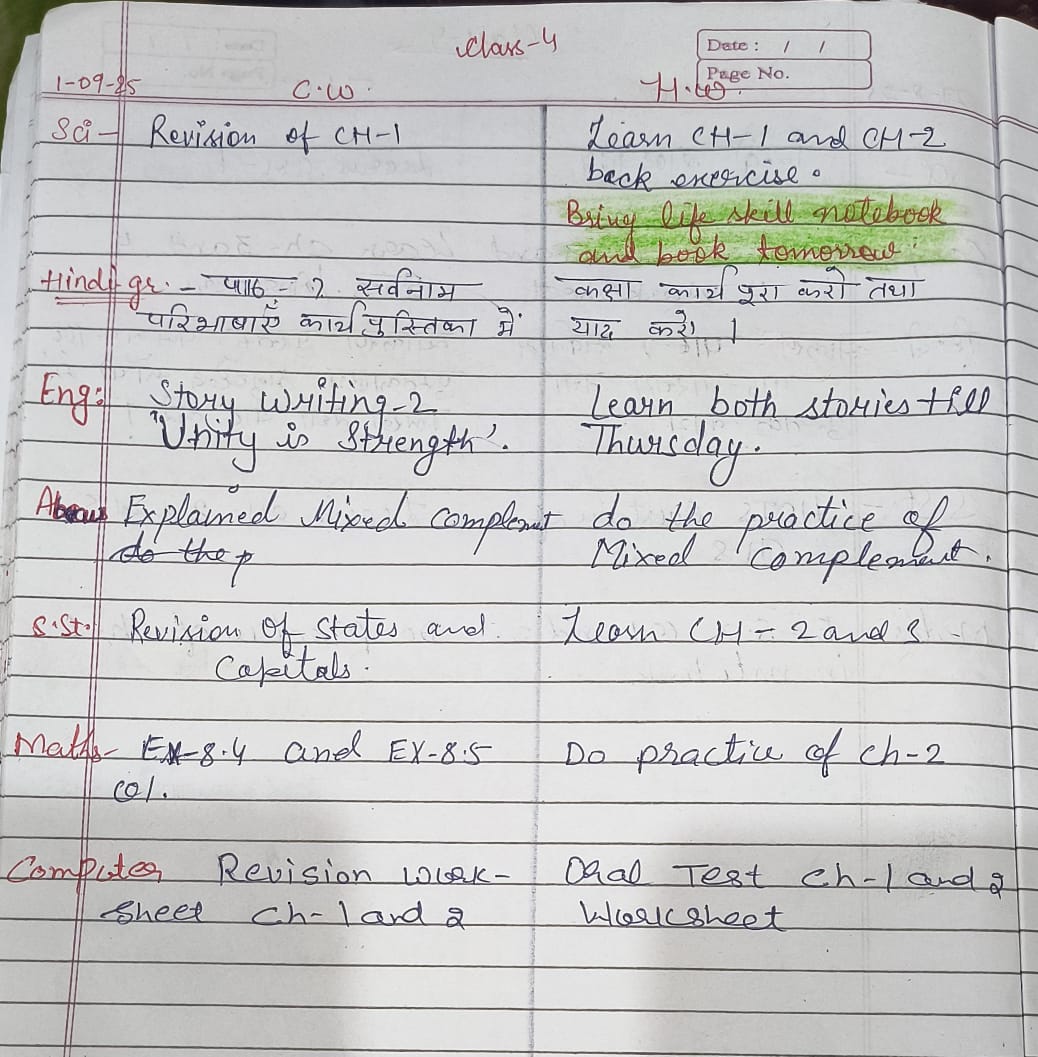 Class-4
Date: / /
Page No.
1-09-25 C.W. H.W.
Sci- Revision of CH-1 Learn CH-1 and CH-2
back exercise.
Bring life skill notebook
and book tomorrow.
Hindi gr. - पाठ - 2 सर्वनाम कक्षा कार्य पूरा करो तथा
परिभाषाएँ कार्य पुस्तिका में याद करो।
Eng: Story Writing-2 Learn both stories till
"Unity is Strength". Thursday.
Explained Mixed complement do the practice of
do the p Mixed complement.
S.St. Revision of States and Learn CH-2 and 3
Capitals.
Maths- Ex-8.4 and EX-8.5 Do practice of ch-2
col.
Computer Revision Work- Oral Test ch-1 and 2
sheet ch-1 and 2 Worksheet